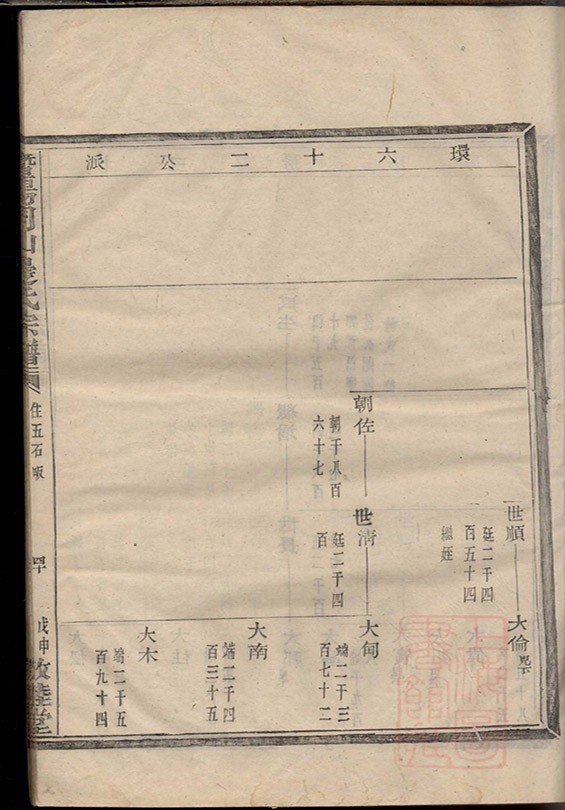 環六十二公派
世順
廷二千四
百五十四
繼姪
大倫
朝佐
朝千八百
六十七
世清
廷二千四
百
大甸
端二千三
百七十二
大南
端二千四
百三十五
大木
端二千五
百九十四
氏宗譜
住五石畈
戊申
敦睦堂